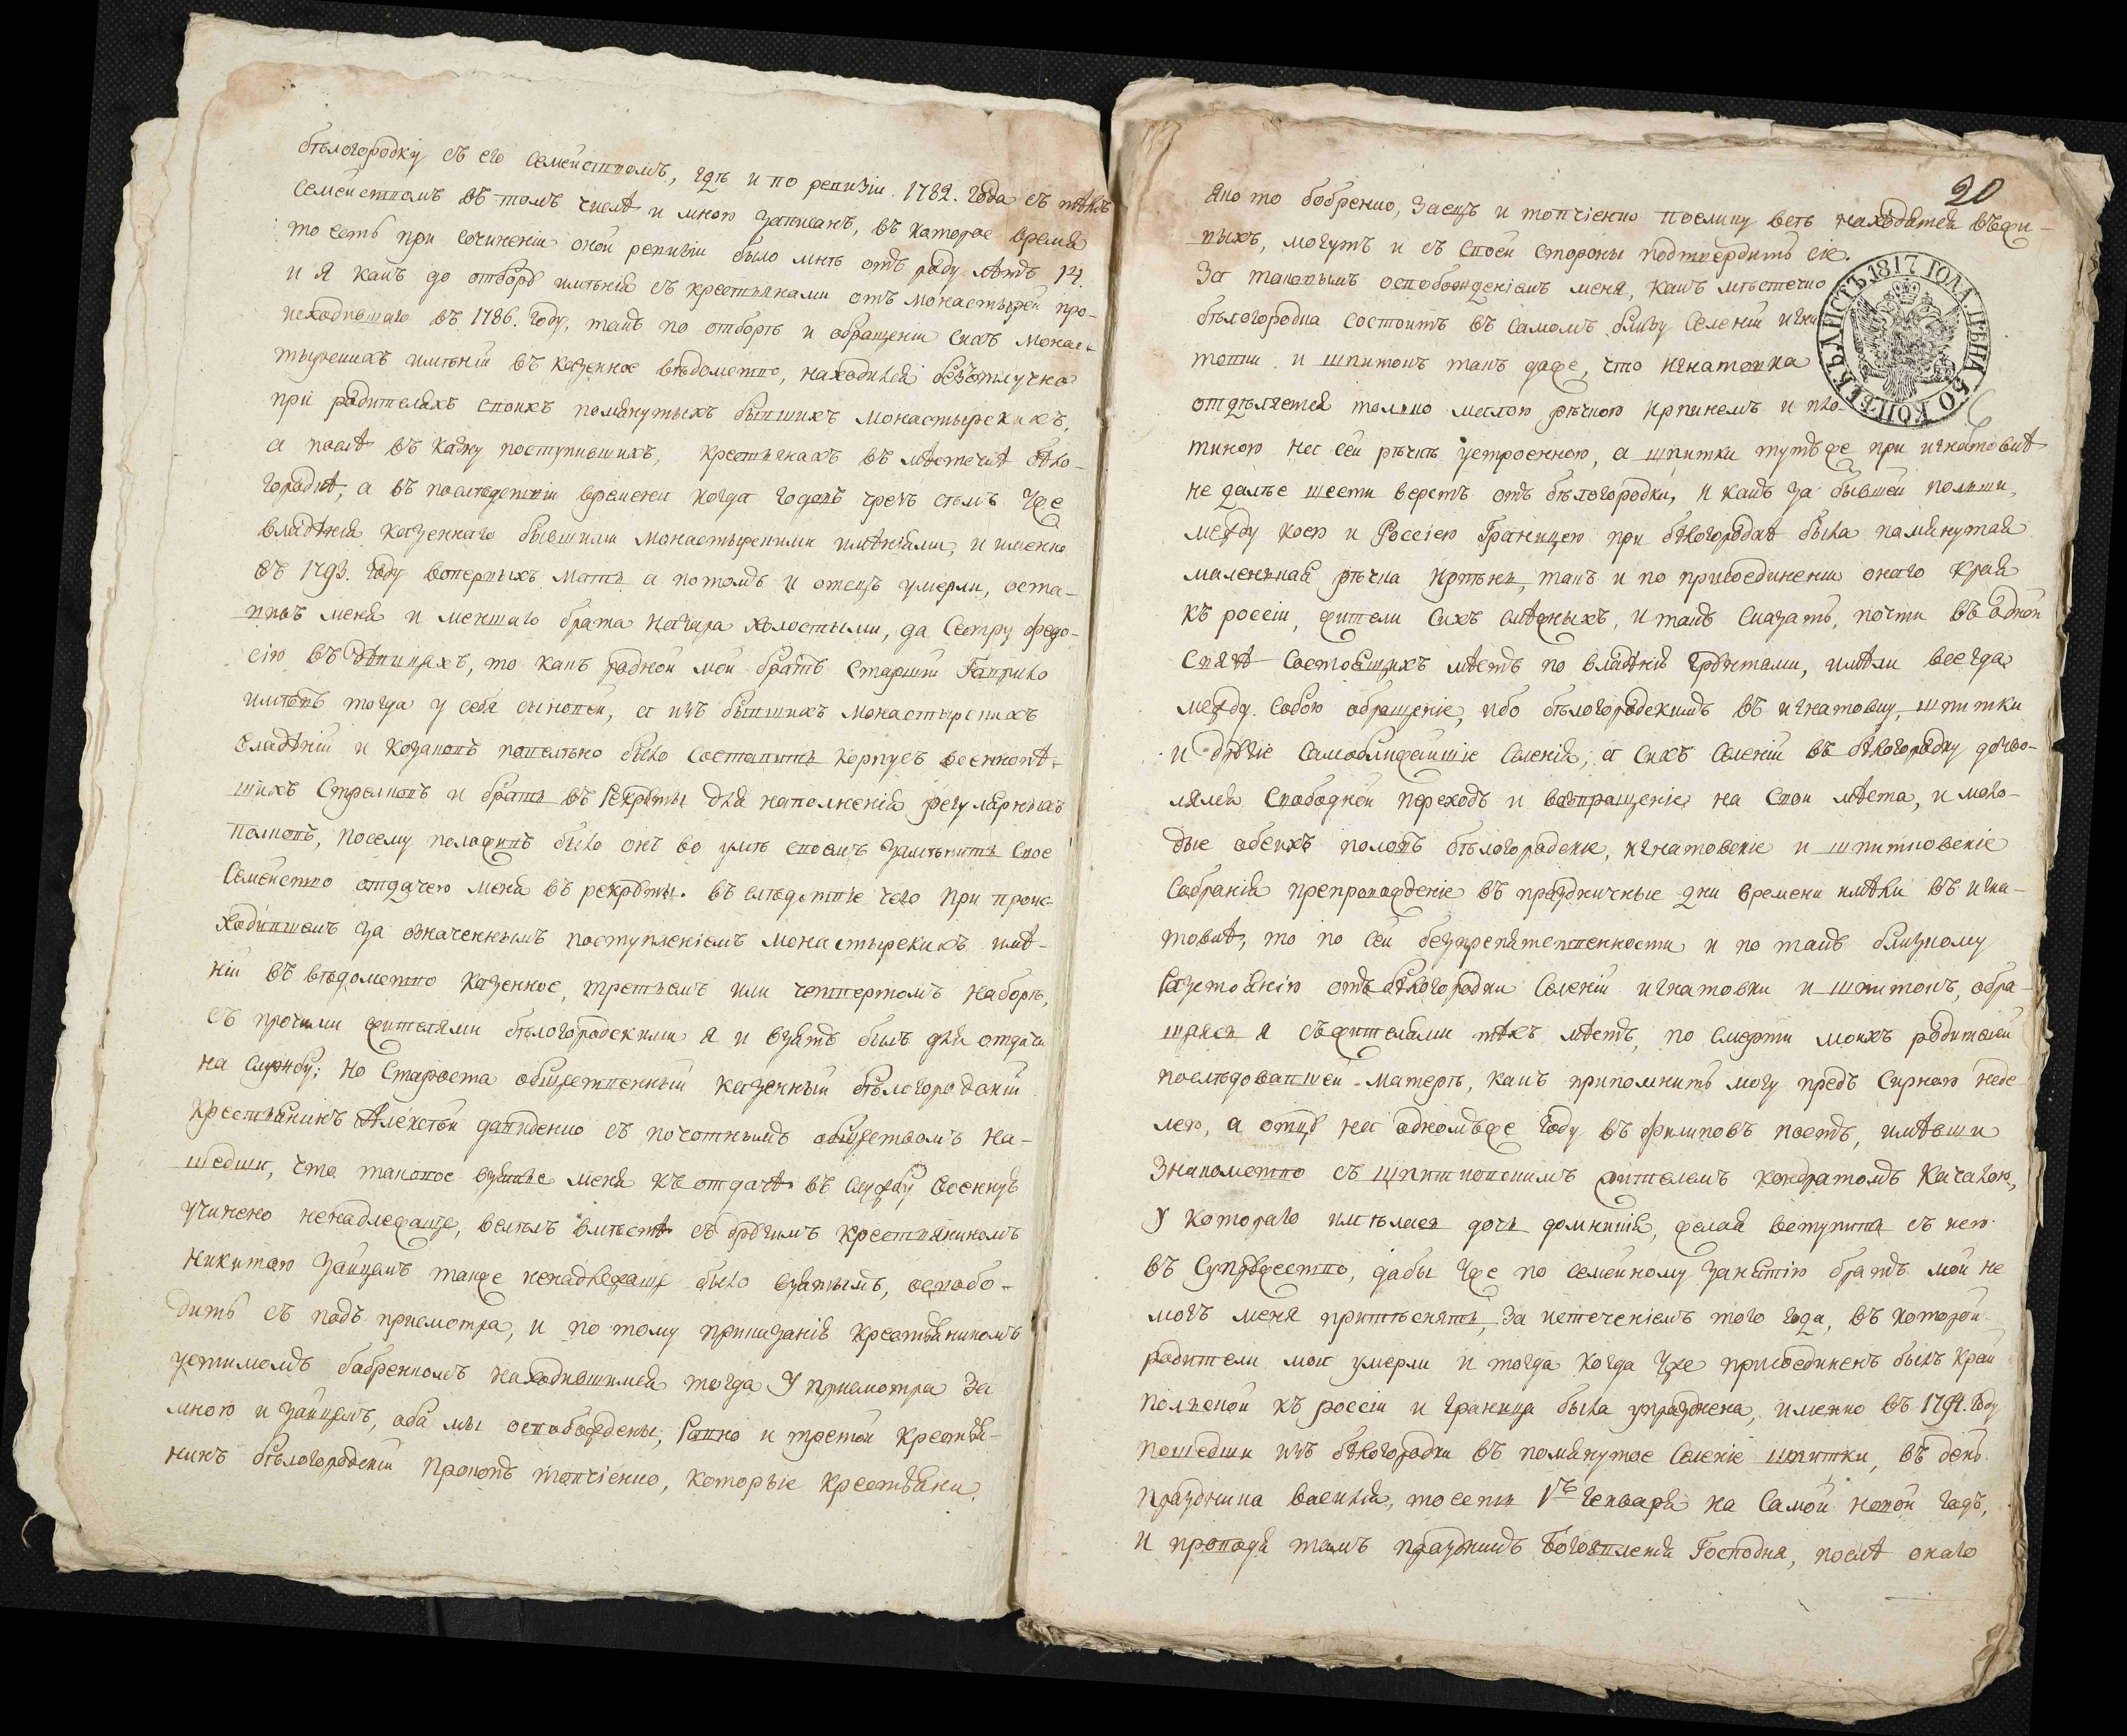 бѣлогородку съ его семействомъ, гдѣ и по ревизіи 1782. года съ тѣмъ
семействомъ въ томъ числѣ и мною записанъ, въ каторае время
то есть при сочиненіи оной ревизіи было мнѣ отъ роду лѣтъ 14.
и я какъ до отбору имѣнія съ крестьянами отъ монастырей про-
исходившаго въ 1786. году, такъ по отборѣ и обращеніи сихъ монас-
тырскихъ имѣній въ казенное вѣдомство, находился безъотлучно
при родителяхъ своихъ помянутыхъ бывшихъ монастырскихъ,
а послѣ въ казну поступившихъ, крестьянахъ въ мѣстечкѣ бѣло-
городкѣ, а въ последствіи времени когда годовъ чрезъ семъ уже
владѣнія казеннаго бывшими монастырскими имѣніями, и именно
въ 1793. году вопервыхъ мать а потомъ и отецъ умерли, оста-
вивъ меня и меншаго брата назара холостыми, да сестру федо-
сію въ дѣвицахъ, то какъ родной мой братъ старший Гаврило
имѣвъ тогда у себя сыновей, а изъ бывшихъ монастырскихъ
владѣній и козаковъ повелѣно было составить корпусъ военнопѣ-
шихъ стрелковъ и брать въ рекруты для наполненія регулярныхъ
полковъ, посему положивъ было онъ во умѣ своемъ замѣнить свое
семейство отдачею меня въ рекруты. въ слѣдствіе чего при проис-
ходившемъ за означеннымъ поступленіемъ монастырскихъ имѣ-
ній въ вѣдомство казенное, третьемъ или четвертомъ наборѣ,
съ прочими жителями бѣлогородскими я и взятъ былъ для отдачи
на службу; но староста общественный казенный бѣлогородскій
крестьянинъ Алексѣй давиденко съ почотнымъ обществомъ на-
шедши, что таковое взятіе меня къ отдачѣ въ службу военную
учинено ненадлежаще, велѣлъ вмѣстѣ съ другимъ крестьяниномъ
никитою зайцемъ также ненадлежаще было взятымъ, освобо-
дить съ подъ присмотра, и по тому приказанію крестьяниномъ
устимомъ бобренкомъ находившимся тогда у присмотра за
мною и зайцемъ, оба мы освобождены, равно и третой крестья-
нинъ бѣлогородскій прокопъ товчіенко, которые крестьяни
20
яко то бобренко, заецъ и товчіенко поелику всѣ находятся въ жи-
выхъ, могутъ и съ своей стороны подтвердить сіе.
За таковымъ освобожденіемъ меня, какъ мѣстечко
бѣлогородка состоитъ въ самомъ близу селеній игна
товки и шпитокъ такъ даже, что игнатовка
отдѣляется только малою рѣчкою ирпинемъ и пло-
тиною на сей рѣчкѣ устроенною, а шпитки тутъже при игнатовкѣ
не далѣе шести верстъ отъ бѣлогородки, и какъ за бывшей польши,
между коею и Россіею границею при бѣлогородкѣ была помянутая
маленькая рѣчка ирпѣнь, такъ и по присоединеніи онаго края
къ россіи, жители сихъ смѣжныхъ, и такъ сказать, почти въ одной
связѣ состоящихъ мѣстъ по владѣнію грунтами, имѣли всегда
между собою обращеніе, ибо бѣлогородскимъ въ игнатовку, шпитки
и другіе самоближайшіе селенія, а сихъ селеній въ бѣлогородку дозво-
лялся свободной переходъ и возвращеніе на свои мѣста, и моло-
дые обеихъ половъ бѣлогородскіе, игнатовскіе и шпитковскіе
собранія препровожденіе въ праздничные дни времени имѣли въ игна-
товкѣ, то по сей безпрепятственности и по такъ близкому
разстоянію отъ бѣлогородки селеній игнатовки и шпитокъ, обра-
щаяся я съ жителями тѣхъ мѣстъ, по смерти моихъ родителей
послѣдовавшей. матерѣ, какъ припомнить могу предъ сирною неде-
лею, а отцу на одномъже году въ филиповъ постъ, имѣвши
знакомство съ шпитковскимъ жителемъ кондратомъ качалою,
у котораго имѣлася дочь домникія, желая вступить съ нею
въ супружество, дабы уже по семейному занятію братъ мой не
могъ меня притѣснять, за истеченіемъ того года, въ которой
родители мои умерли и тогда когда уже присоединенъ былъ край
польской къ россіи и граница была упразднена, именно въ 1794. году
пошедши изъ бѣлогородки въ помянутое селеніе шпитки, въ день
праздника василія, тоесть 1го генваря на самой новой годъ,
и проводя тамъ праздникъ Богоявленія Господня, послѣ онаго
ЛИСТЪ 1817 ГОДА. ЦѢНА 50 КОПѢЕКЪ